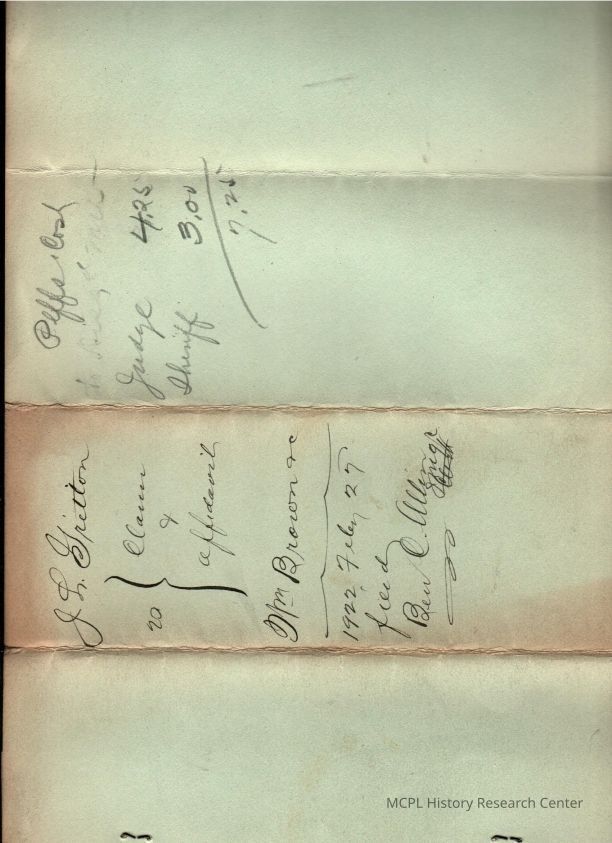 Plffs Cost
Judge 4.25
Sheriff 3.00
7.25
J. L. Gritton
vs } Claim
&
affidavit
Wm Brown &c
1922 Feby 27
filed
Ben C. Allin
MCPL History Research Center